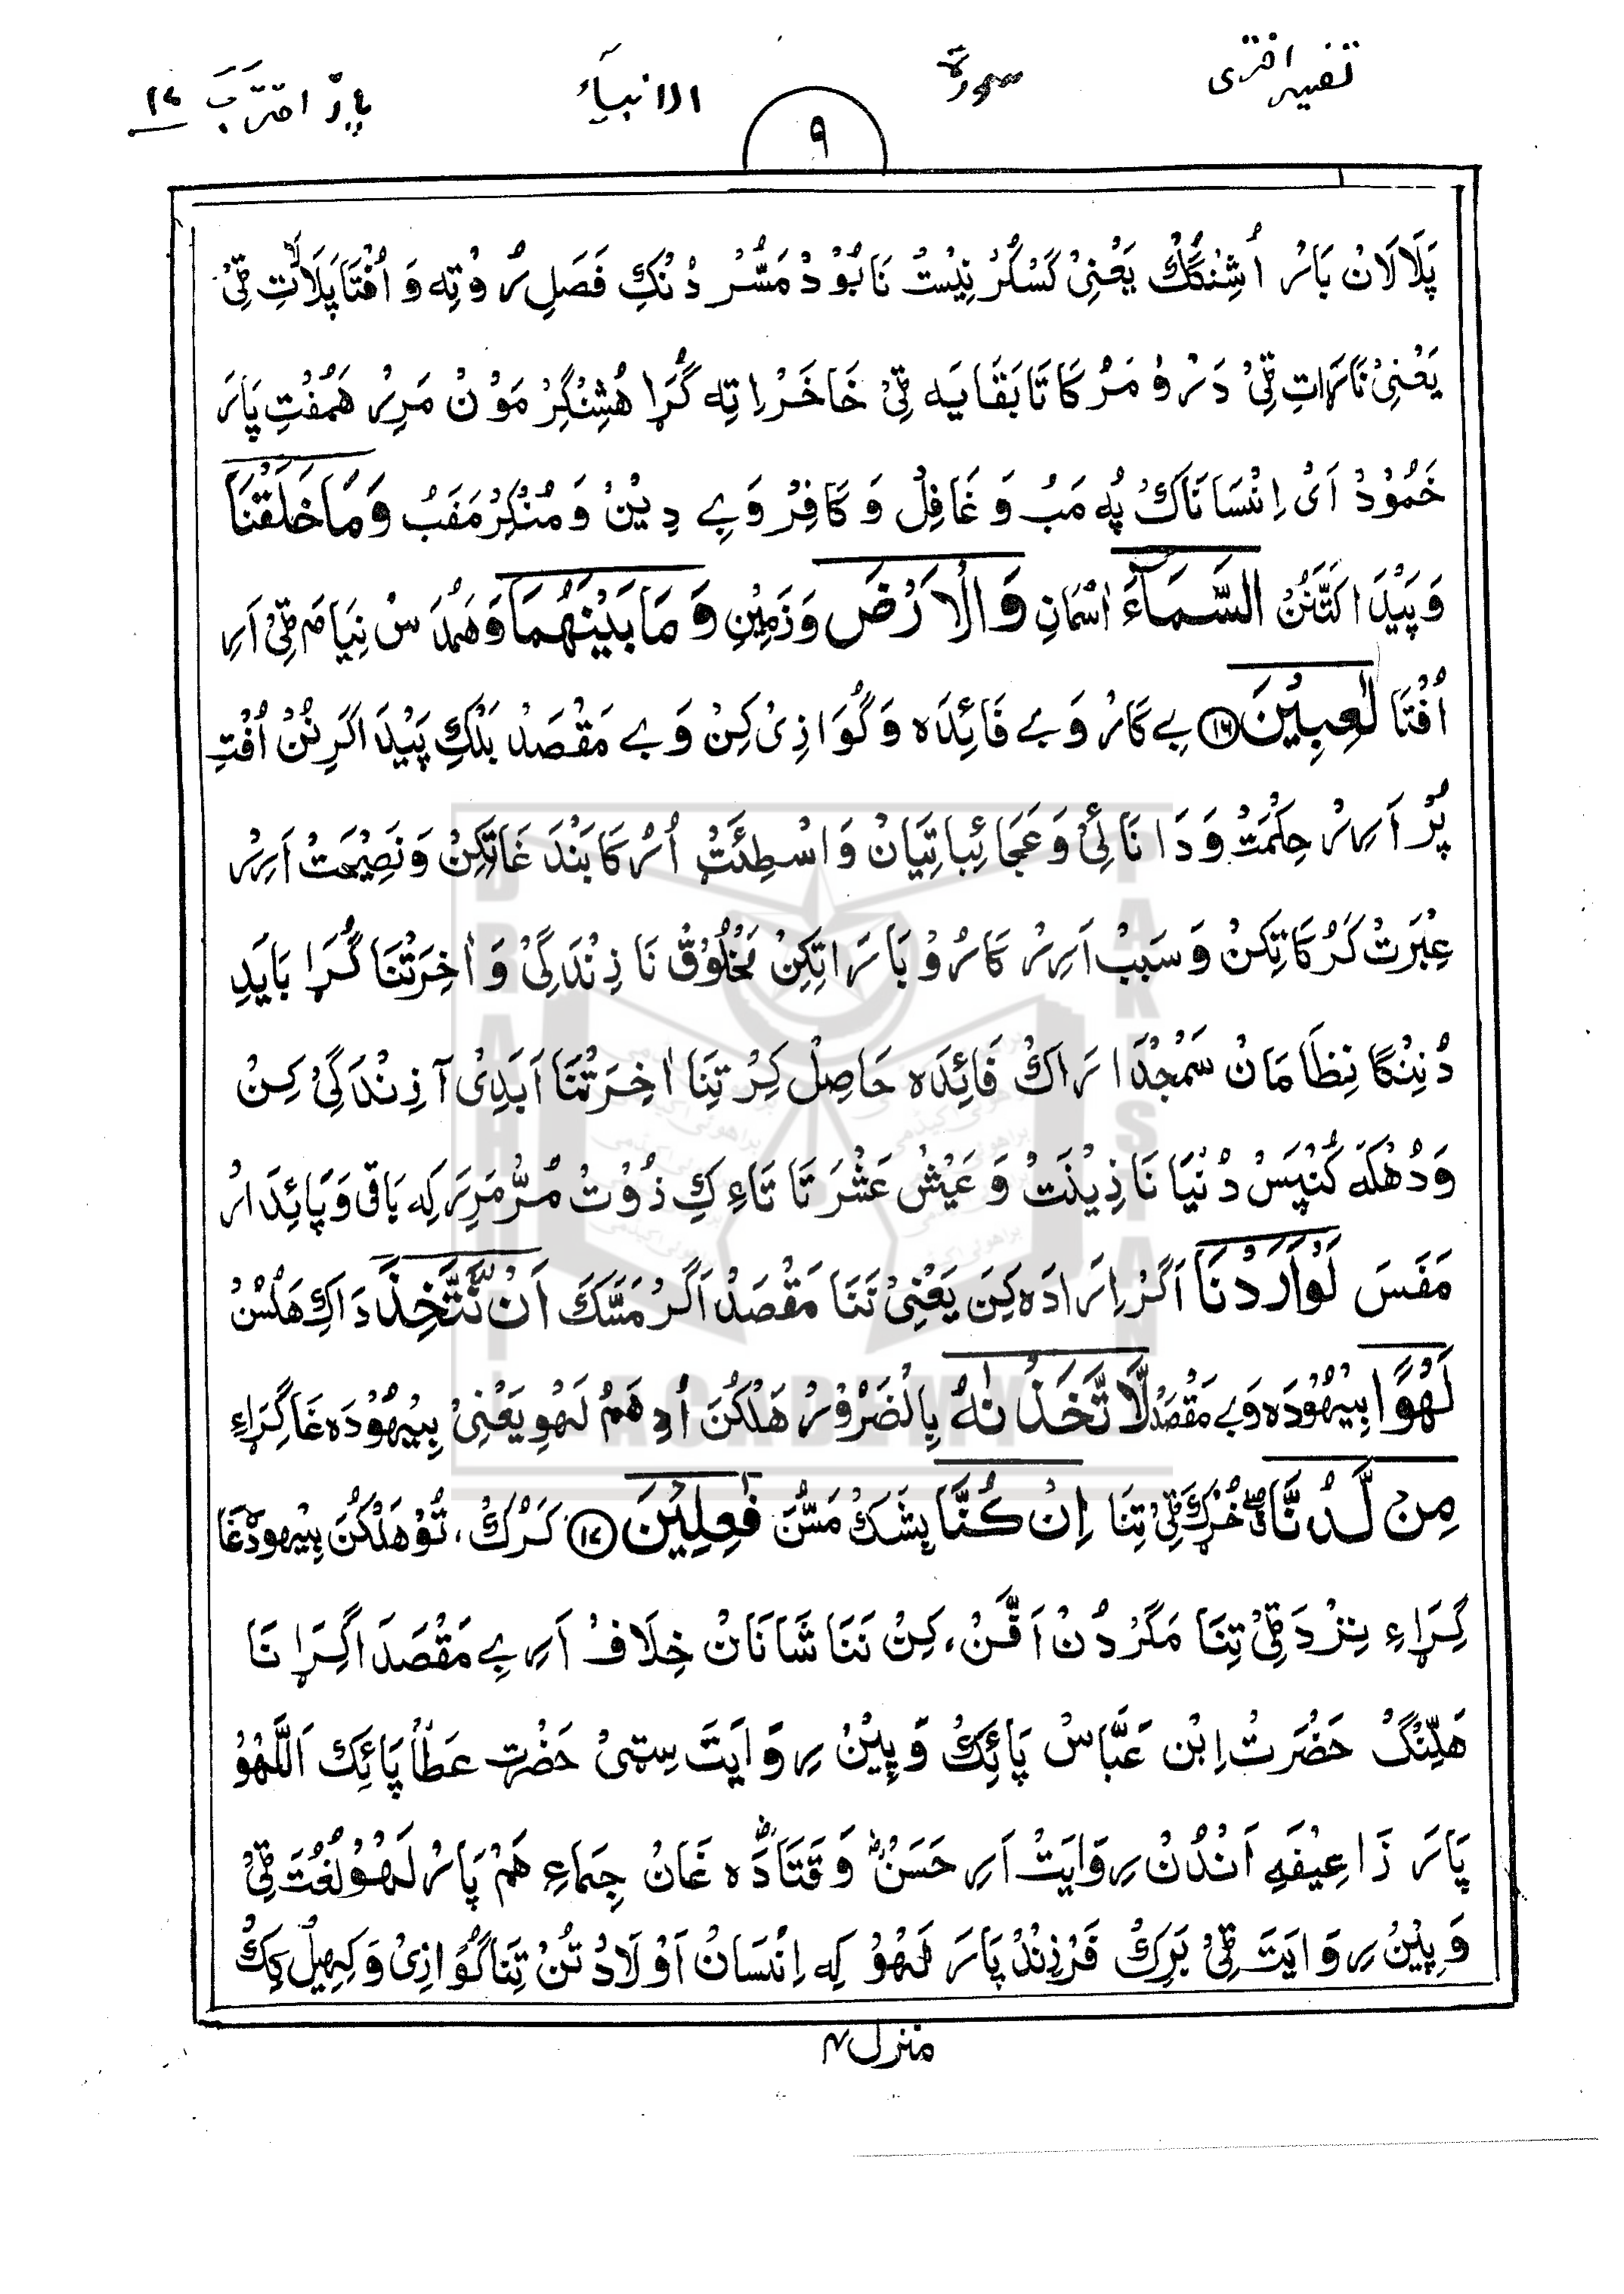 تفسیر اختری سورۃ الانبیاء پارہ اقترب ۱۷
۹
پَلَالَانْ بَاسُرْ اُشِنْکُکْ یَعْنِیْ گَسْکُرْ نِیْسْتْ نَابُوْدْ مَسُّرْ دُنْکِ فَصَلِ رُوْتِہ وَ اُفْتَا پَلَاتِ ٹِیْ
یَعْنِیْ نَاسَاتِ ٹِیْ دَسْ وُ مَرُکَا تَا بَقَایَہ ٹِیْ خَاخَرْ اِتِہ گُڑَا ھُشِنْگِرْ مَوْنْ مَرِسُ ھَمُفْتِ پَاسَ
خَمُوْدْ اَیْ اِنْسَانَاکْ پِہ مَبُ وَ غَافِلْ وَ کَافِرْ وَبِے دِیْنْ وَ مُنْکِرْ مَفَبُ وَمَا خَلَقْنَا
وَ پَیْدَا کَتَّنُنْ السَّمَآءَ اٰسْمَانِ وَالْاَرْضَ وَزَمِیْنِ وَمَا بَیْنَھُمَا وَھَمْدَسْ نِیَامَ ٹِیْ اَسِ
اُفْتَا لٰعِبِیْنَ ⑯ بِے کَاسْ وَبِے فَائِدَہ وَ گُوَازِیْ کِنْ وَبِے مَقْصَدْ بَلْکِ پَیْدَا کَرِنُنْ اُفْتِ
پُرْ اَسِسْ حِکْمَتْ وَ دَانَائِیْ وَ عَجَائِبَاتِیَانْ وَاسْطِئَتْ اُسْکَا بَنْدَ غَاتِکِنْ وَ نَصِیْحَتْ اَسِسْ
عِبْرَتْ کَرُکَاتِکِنْ وَ سَبَبْ اَسِسْ کَاسْ وُ بَاسَاتِکِنْ مَخْلُوْقْ نَا زِنْدَگِیْ وَ اٰخِرَتْنَا گُڑَا بَایَدِ
دُنِنْگَا نِظَامَانْ سَمْجْدَاسَاکْ فَائِدَہ حَاصِلْ کِرْ تِنَا اٰخِرَتْنَا اَبَدِیْ آ زِنْدَگِیْ کِنْ
وَدُھْکَہ کُنْپَسْ دُنْیَا نَا زِیْنَتْ وَ عَیْشْ عَشْرَتَا تَاءِ کِ زُوْتْ مُرّْ مَرِسَ کِہ بَاقِی وَ پَائِدَاسْ
مَفَسَ لَوْاَرَدْنَا اَگَرْ اِسَادَہ کِنَ یَعْنِیْ نَنَا مَقْصَدْ اَگَرْ مَسَّکَ اَنْ نَّتَّخِذَ دَاکِ ھَلْسُنْ
لَھْوًا بِیْھُوْدَہ وَبِے مَقْصَدْ لَّاتَّخَذْنٰہُ بِالْضَرُوْسْ ھَلْکُنَ اُدِ ھَمْ لَھْوِ یَعْنِیْ بِیْھُوْدَہ غَا گِرَاءِ
مِنْ لَّدُنَّا خُرُکَ ٹِیْ تِنَا اِنْ کُنَّا بِشَکْ مَسُّنَ فٰعِلِیْنَ ⑰ کَرُکْ، تُوْ ھَلْکُنَ بِیْھُوْدَہ غَا
گِرَاءِ نِزْدَ ٹِیْ تِنَا مَگَرْ دُنْ اَفَّنْ، کِنْ نَنَا شَانَانْ خِلَافْ اَسِ بِے مَقْصَدَا گِرَانَا
ھَلِّنْگْ حَضْرَتْ اِبْن عَبَّاسْ پَائِکْ وَ پِیْنْ سِوَایَتَ سِٹِیْ حَضْرَتِ عَطَا پَائِکْ اَللَّھْوُ
پَاسَ زَاعِیْفَہِ اَنْدُنْ سِوَایَتْ اَسِ حَسَنْ وَ قَتَادَہ غَانْ جِمَاعِ ھَمْ پَاسْ لَھْوْ لُغَتَ ٹِیْ
وَ پِیْنْ سِوَایَتَ ٹِیْ بَرِکْ فَرْزِنْدِ پَاسَ لَھْوْ کِہ اِنْسَانْ اَوْلَادْتُنْ تِنَا گُوَازِیْ وَ کِھِیْلْ کِکْ
منزل۴
BRAHUI ACADEMY PAKISTAN